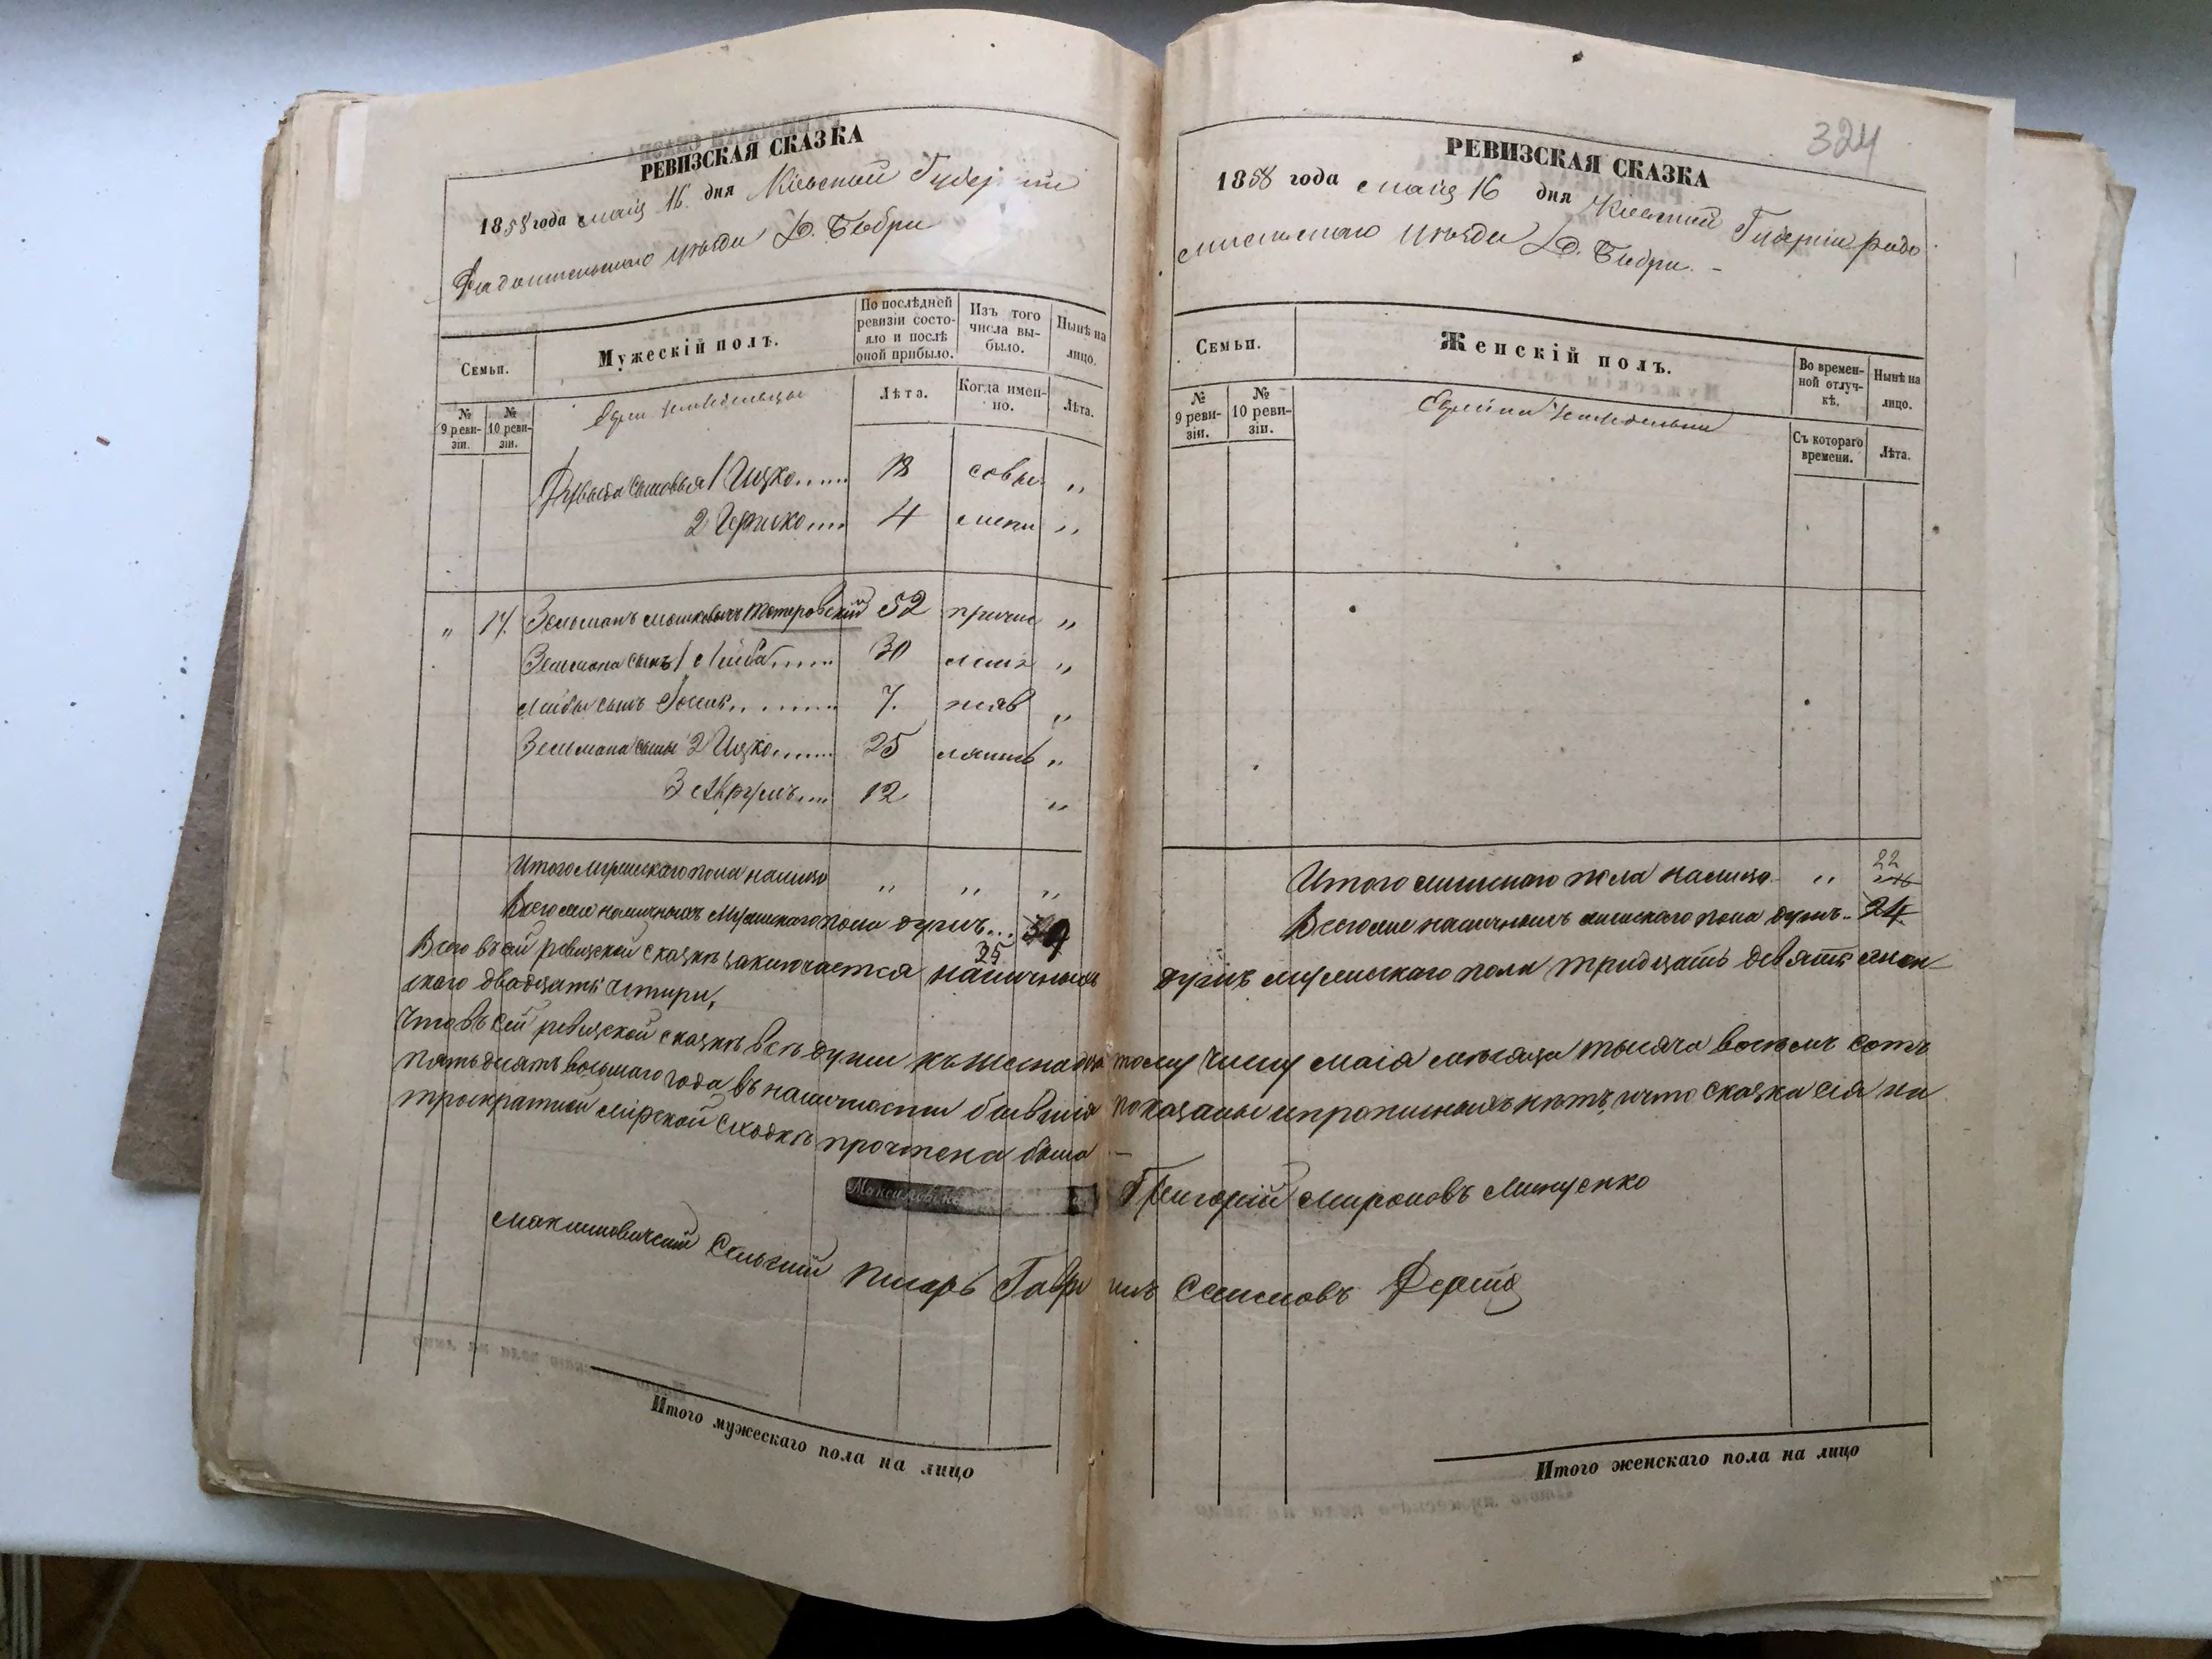 РЕВИЗСКАЯ СКАЗКА
1858 года маія 16 дня Кіевской Губерніи
Радомысльскаго уѣзда Д. Бобри
Семьи.
Мужескій полъ.
По послѣдней ревизіи состояло и послѣ оной прибыло.
Изъ того числа выбыло.
Нынѣ на лицо.
№ 9 ревизіи.
№ 10 ревизіи.
Евреи земледельцы
Лѣта.
Когда именно.
Лѣта.
сыновья 1 Ицко...... 18 „
2 Гершко.... 4 „
„ 14. Зельманъ Мошковичъ Тетеровскій 52 причи „
Зельмана сынъ 1 Лейба..... 30 „
Лейбы сынъ Іосип......... 7. „
Зельмана сыны 2 Ицко...... 25 „
3 12 „
Итого мужескаго пола налицо „ „ „
Всего же наличныхъ мужескаго пола душъ... 39
35
Всего въ сей ревизской сказкѣ заключается наличныхъ
скаго двадцать четыри,
Что въ сей ревизской сказкѣ всѣ души къ шестнадца
пятьдесятъ восьмаго года въ наличности бывшія
троекратной мірской сходкѣ прочтена была
Максимовск
Максимовичскій Сельскій писарь Гаври
Итого мужескаго пола на лицо
324
РЕВИЗСКАЯ СКАЗКА
1858 года маія 16 дня Кіевской Губерніи Радо
мысльскаго уѣзда Д. Бобри. -
Семьи.
Женскій полъ.
Во временной отлучкѣ.
Нынѣ на лицо.
№ 9 ревизіи.
№ 10 ревизіи.
Еврейки земледельки
Съ котораго времени.
Лѣта.
22
Итого женскаго пола налицо „
Всего же наличныхъ женскаго пола душъ.. 24
душъ мужескаго пола тридцать девять жен-
тому числу маія мѣсяца тысяча восемь сотъ
показаны и прописныхъ нѣтъ, и что сказка сія на
Григорій Мироновъ
илъ Семеновъ
Итого женскаго пола на лицо